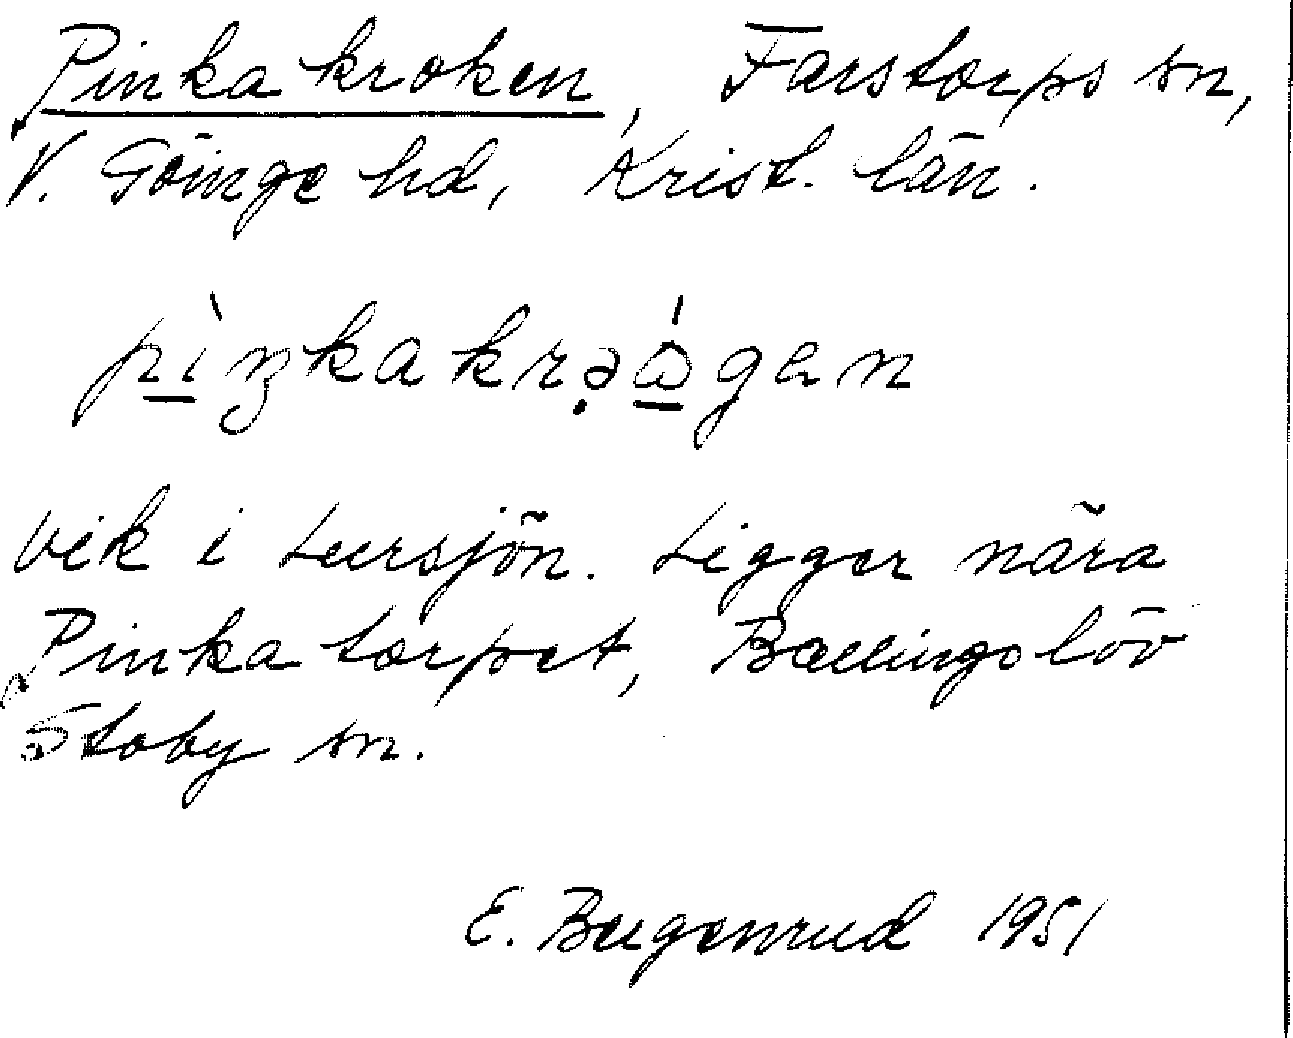 Pinkakroken, Farstorps sn,
V. Göinge hd, Krist. län.
vik i Lursjön. Ligger nära
Pinkatorpet, Ballingslöv
Stoby sn.
E. 1951